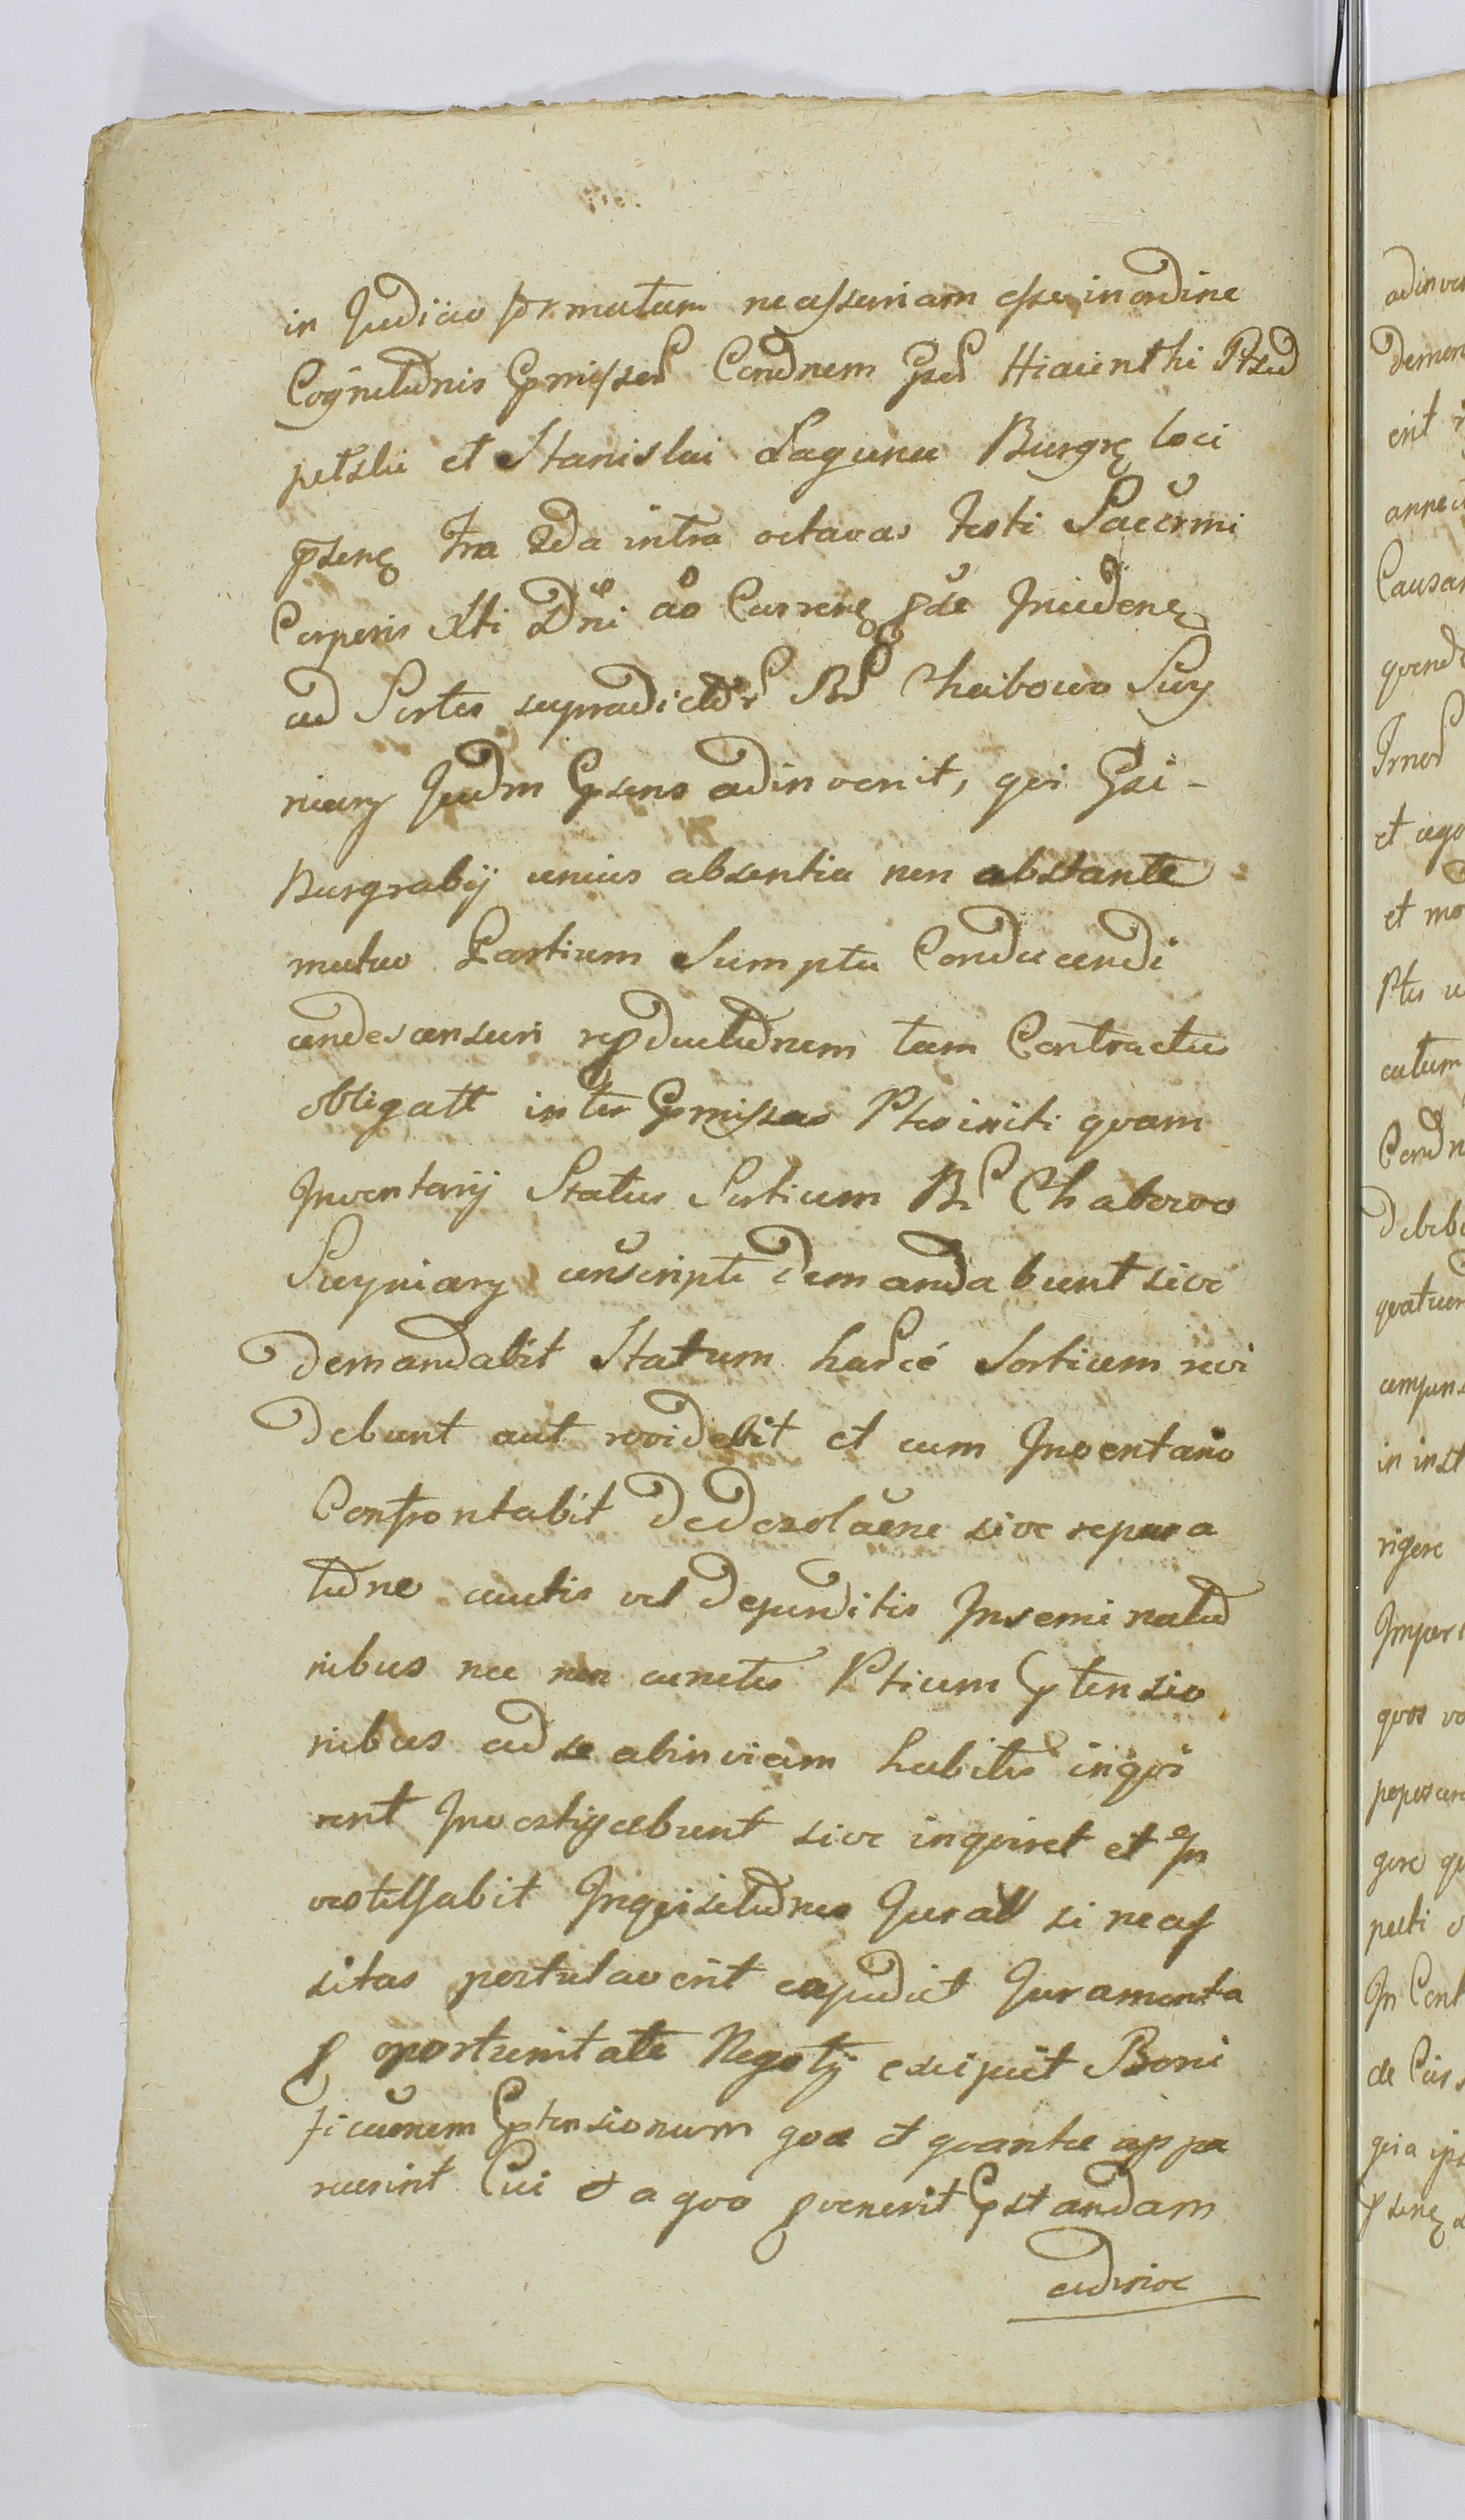 in Judicio formatam necessariam esse, in ordine
Cognitdnis Pmissor Condnem Gsor Hiacinthi
petslii et Stanislai Laguna Burgrę loci
psenę Fra 2da intra octavas Festi Sacermi
Corporis Xti Dni ao Currenę pse Incidenę
ad Sortes supradictor Br Chabowo Suy
niary Judm Psens adinvenit, qui Gsi-
Burgrabij unius absentia non obstante
mutuo Partium Sumptu Conducendi
condescensuri repductdnem tam Contractus
obligatt inter Pmissas Ptes initi quam
Inventarij Status Sortium Br Chabowo
Suyniary conscripti demandabunt sive
demandabit Statum harce Sortium revi
debunt aut revidebit et cum Inventario
Confrontabit de desolaone sive repara
tdne auctis vel deperditis Inseminatd
nibus nec non cunctis Ptium Ptensio
nibus ad se abinvicem habitis inqui
rent Investigabunt sive inquiret et In
vestigabit Inquisitdnes Juratt si neces
sitas postulaverit expediet Juramenta
p oportunitate Negotij excipiet Boni
ficaonem Ptensionum qoe et quantae appa
ruerint Cui et a quo pvenerit Pstandam
adinve
adinve
demen
erit
annect
Causar
et mo
Ptes
Condn
Debeb
in inst
rigore
Impert
quos vo
gere qu
In Cont
de Cius